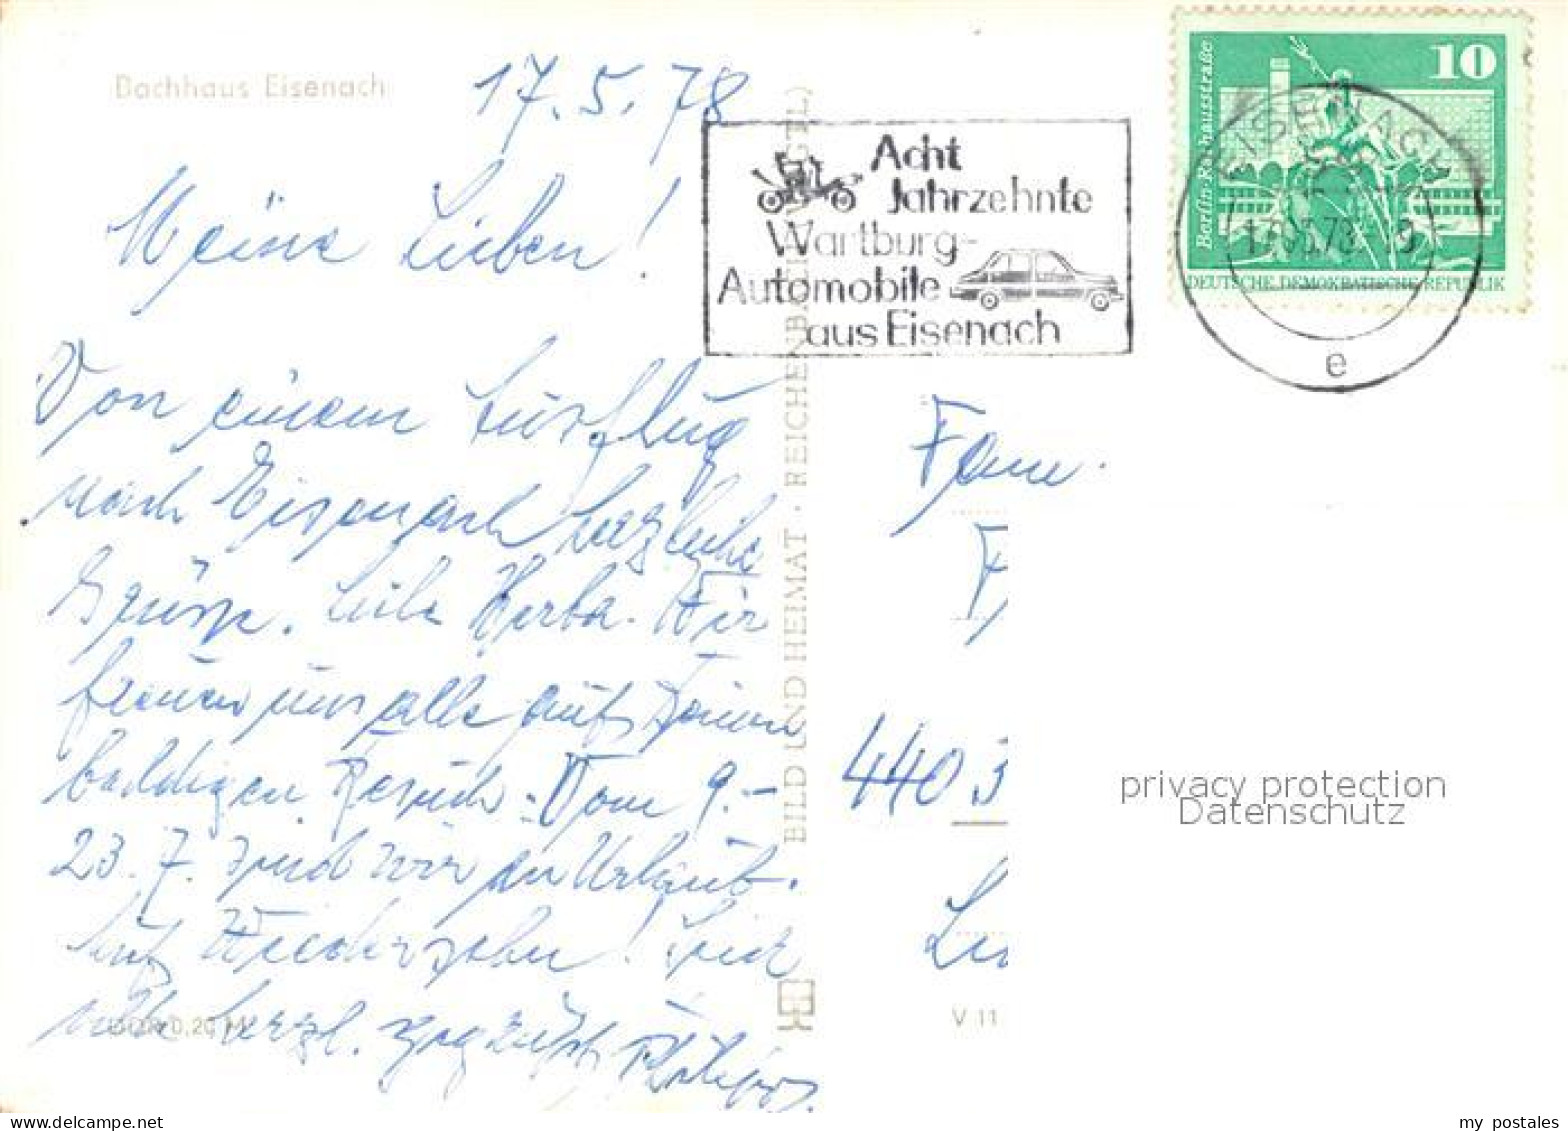 Bachhaus Eisenach
17. 5. 78
Meine Lieben!
Von einem Ausflug
nach Eisenach herzliche
Grüsse. Wir
freuen uns alle auf Deinen
baldigen Besuch. Vom 9.-
23. 7. sind wir in Urlaub.
Auf Wiedersehn! Seid
alle herzl. gegrüßt
DDR 0,20 M
BILD UND HEIMAT · REICHENBACH (VOGTL)
Acht
Jahrzehnte
Wartburg-
Automobile
aus Eisenach
10
Berlin-Rathausstraße
DEUTSCHE DEMOKRATISCHE REPUBLIK
EISENACH
e
Fam.
4403
V 11
privacy protection
Datenschutz
my postales